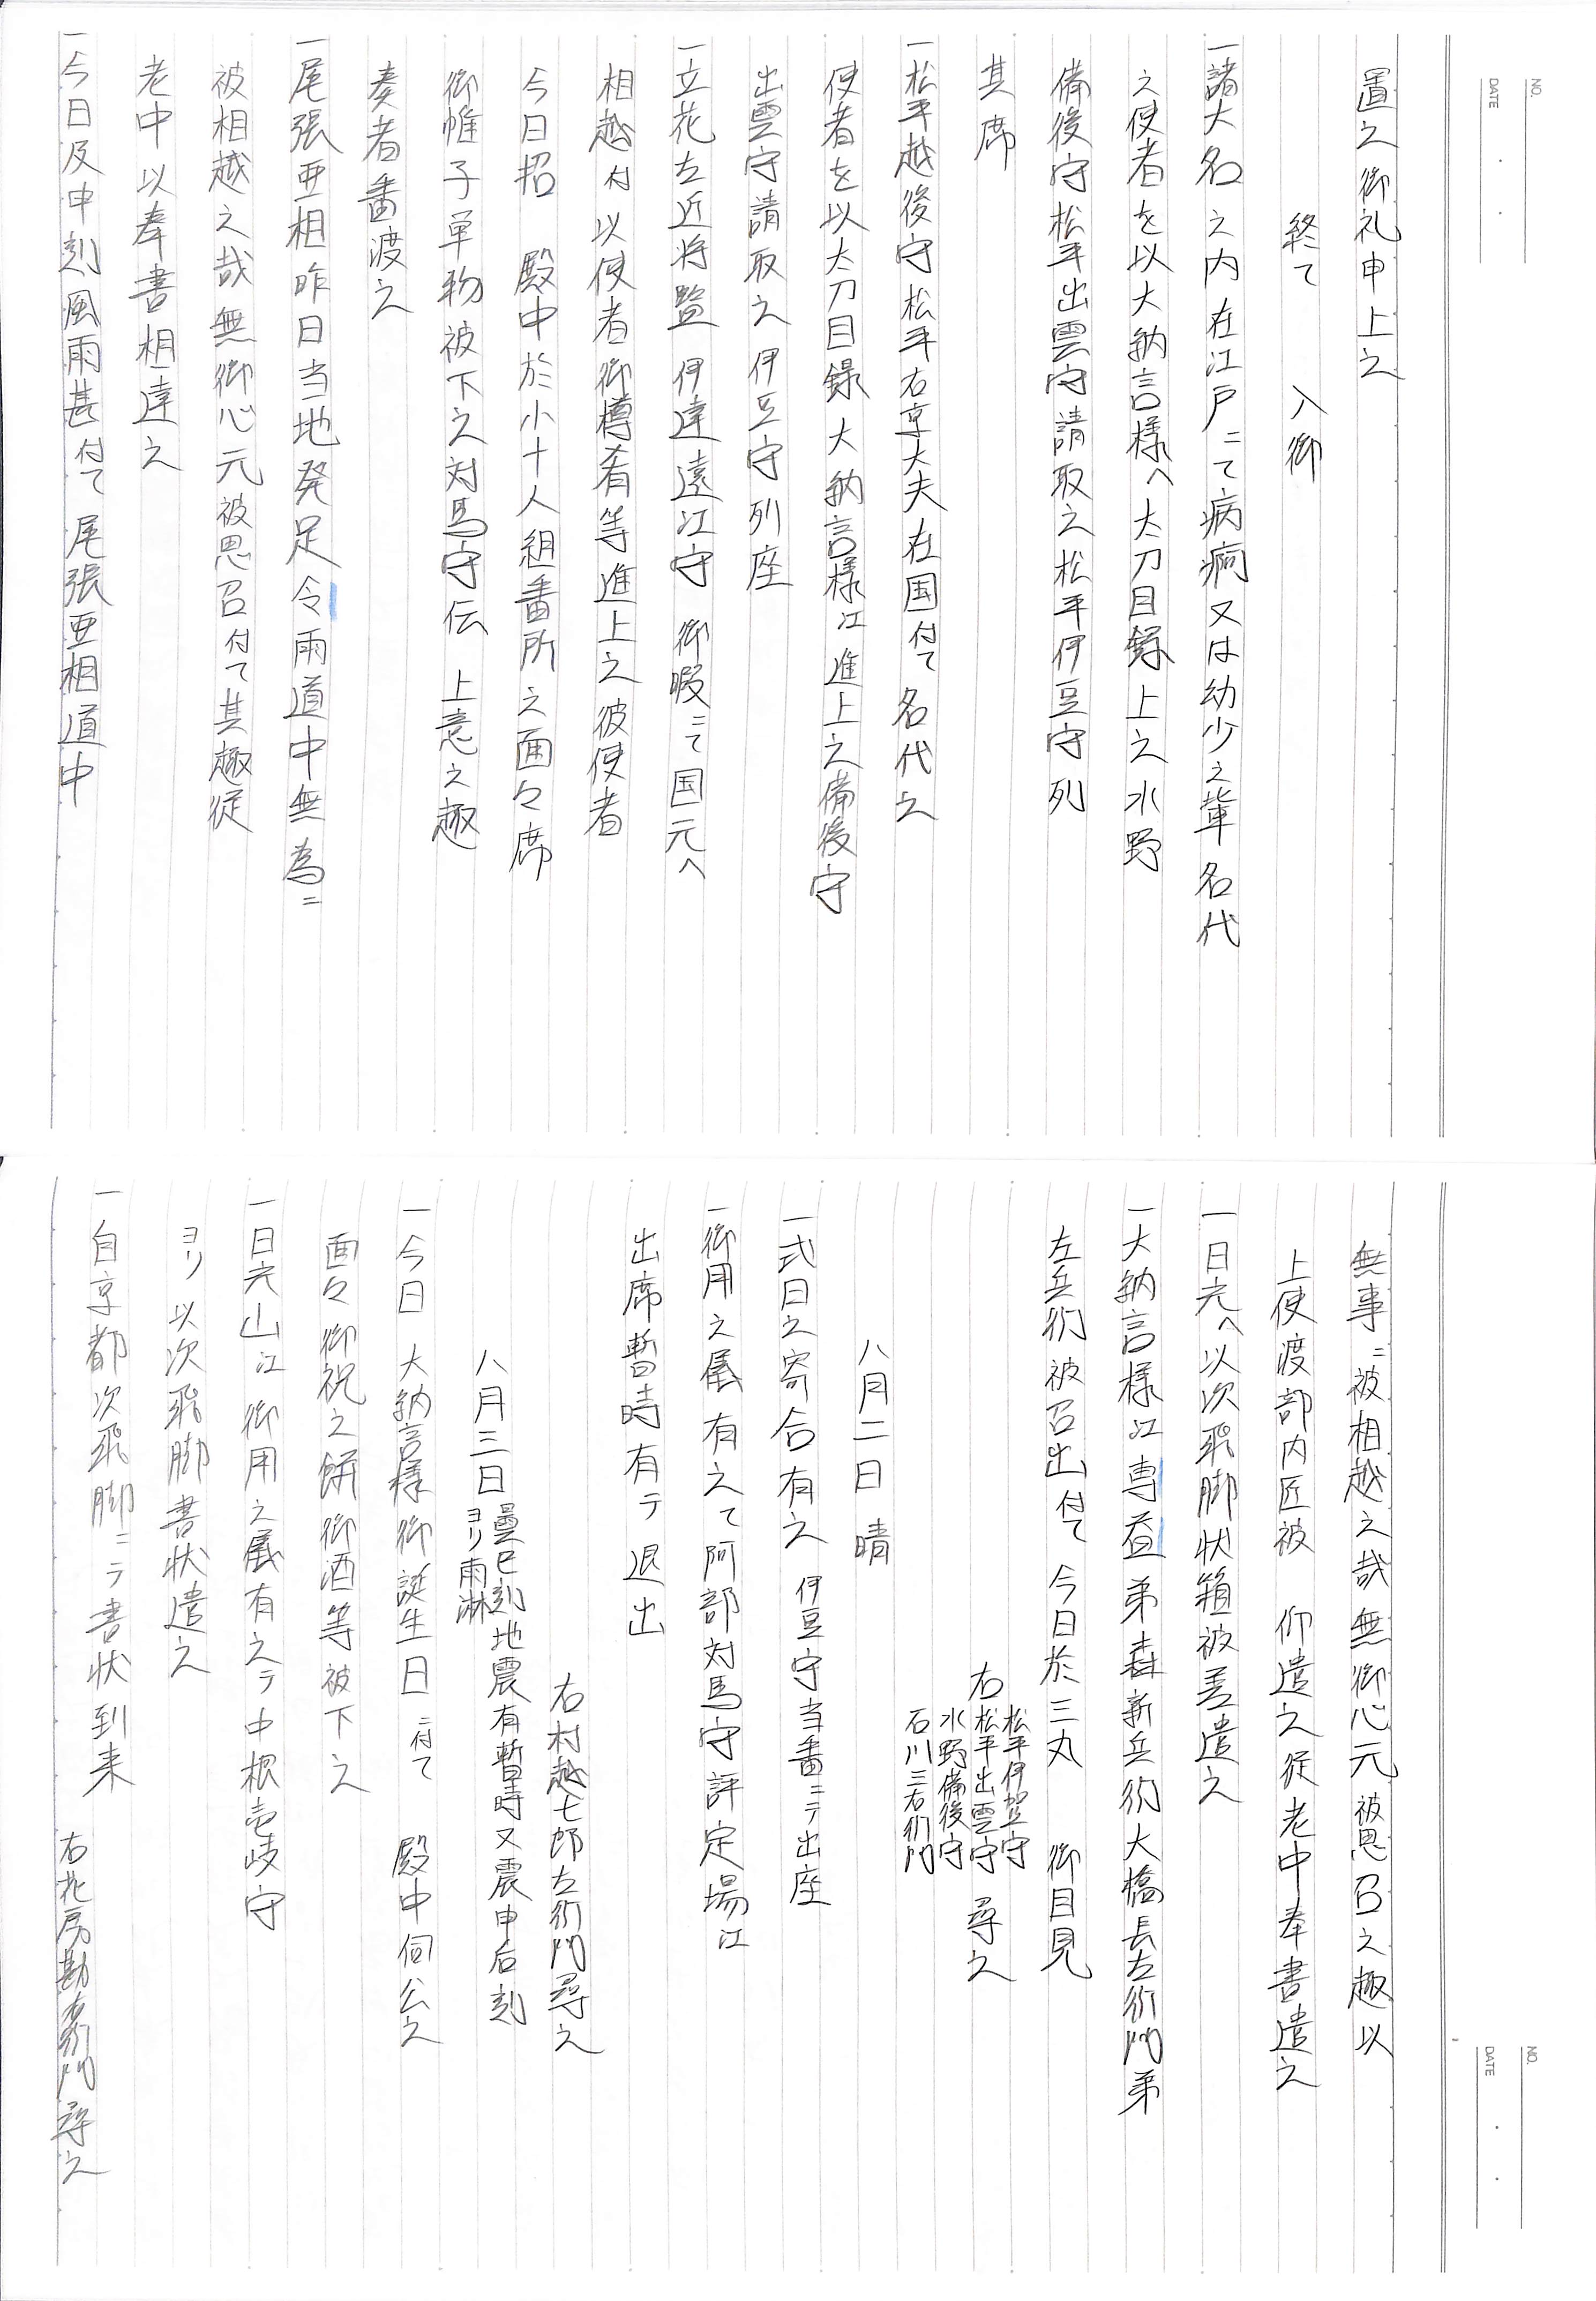 NO.
DATE
置之御礼申上之
終て　入御
一諸大名之内在江戸ニて病痾又は幼少之輩名代
之使者を以大納言様へ太刀目録上之水野
備後守松平出雲守請取之松平伊豆守列
其席
一松平越後守松平右京大夫在国付て名代之
使者を以太刀目録大納言様江進上之備後守
出雲守請取之伊豆守列座
一立花左近将監伊達遠江守　御暇ニて国元へ
相越付以使者御樽肴等進上之彼使者
今日招　殿中於小十人組番所之面々席
御帷子単物被下之対馬守伝　上意之趣
奏者番渡之
一尾張亜相昨日当地発足令雨道中無為ニ
被相越之哉無御心元被思召付て其趣従
老中以奉書相達之
一今日及申刻風雨甚付て尾張亜相道中
NO.
DATE
無事ニ被相越之哉無御心元被思召之趣以
上使渡部内匠被　仰遣之従老中奉書遣之
一日光へ以次飛脚状箱被差遣之
一大納言様江専益弟森新兵衛大橋長左衛門弟
左兵衛被召出付て今日於三丸　御目見
右　松平伊賀守　松平出雲守　水野備後守　石川三右衛門　尋之
八月二日　晴
一式日之寄合有之　伊豆守当番ニテ出座
一御用之儀有之て阿部対馬守評定場江
出席暫時有テ退出
右村越七郎左衛門尋之
八月三日　曇巳刻地震有暫時又震申后刻ヨリ雨淋
一今日　大納言様御誕生日ニ付て　殿中伺公之
面々御祝之餅御酒等被下之
一日光山江御用之儀有之テ中根壱岐守
ヨリ以次飛脚書状遣之
一自京都次飛脚ニテ書状到来
右花房勘右衛門尋之